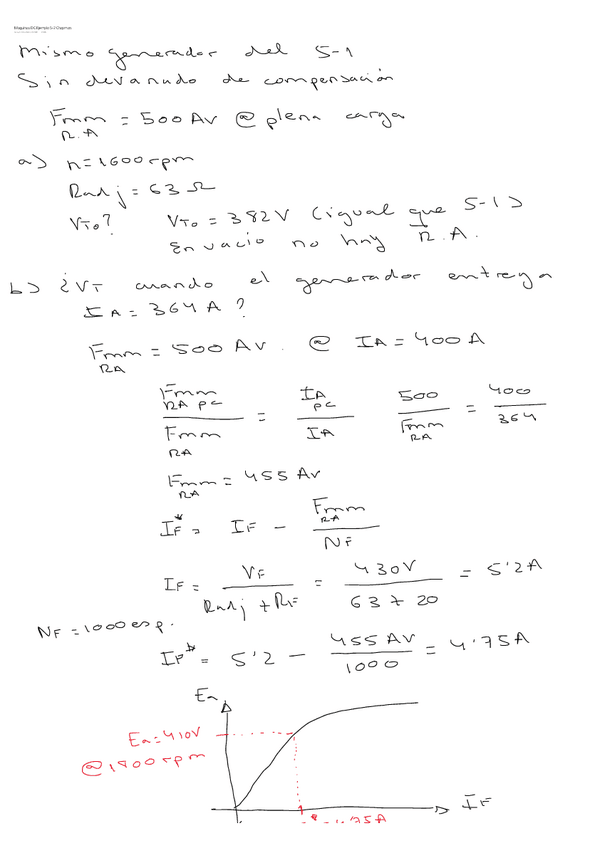 Mismo generador del 5-1
Sin devanado de compensación
Fmm R.A = 500 Av @ plena carga
a) n=1600rpm
Radj = 63 Ω
VTo? VTo = 382V (igual que 5-1)
En vacío no hay R.A.
b) ¿VT cuando el generador entrega
IA = 364 A?
Fmm RA = 500 Av. @ IA = 400 A
Fmm RA pc / Fmm RA = IA pc / IA 500 / Fmm RA = 400 / 364
Fmm RA = 455 Av
IF* = IF - Fmm RA / NF
IF = VF / Radj + RF = 430V / 63 + 20 = 5'2A
NF = 1000 esp.
IF* = 5'2 - 455 AV / 1000 = 4'75A
Ea
Ea=410V
@1800rpm
IF
4.75A